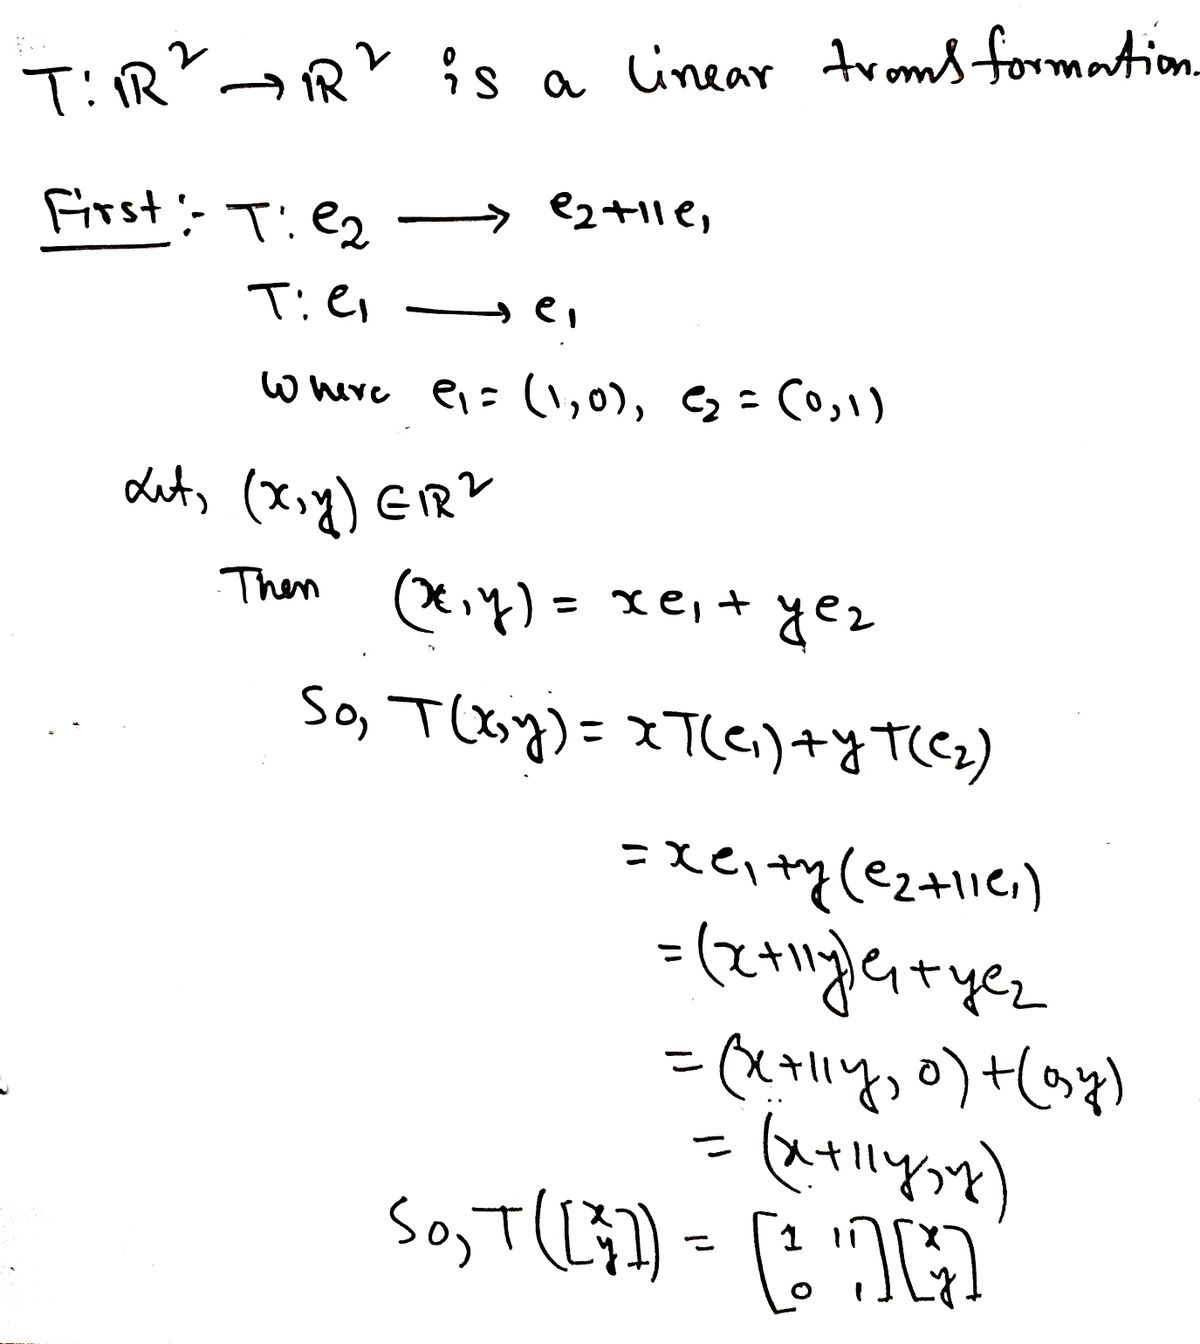 T: ℝ² → ℝ² is a linear transformation.
First :- T: e₂ ⟶ e₂+11e₁
T: e₁ ⟶ e₁
Where e₁ = (1,0), e₂ = (0,1)
Let, (x,y) ∈ ℝ²
Then (x,y) = xe₁ + ye₂
So, T(x,y) = xT(e₁)+yT(e₂)
= xe₁+y(e₂+11e₁)
= (x+11y)e₁+ye₂
= (x+11y, 0)+(0,y)
= (x+11y,y)
So, T([x y]) = [1 11 0 1][x y]